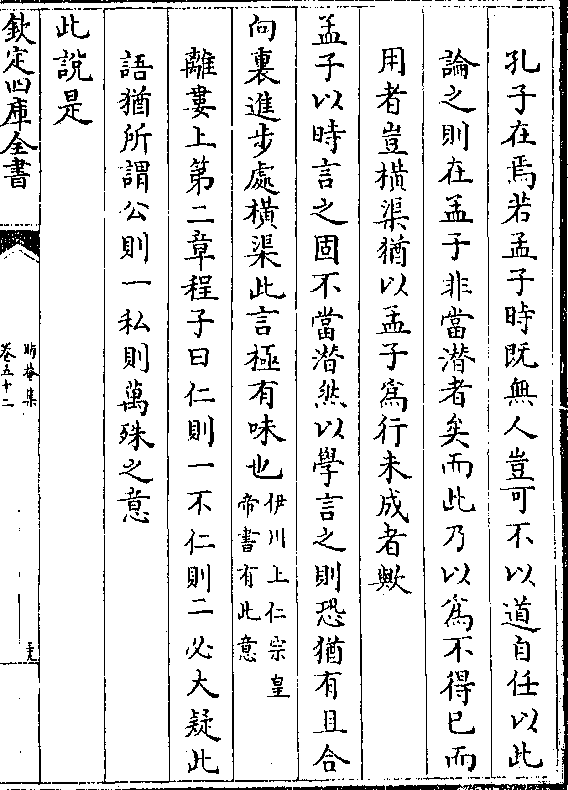 孔子在焉若孟子時既無人豈可不以道自任以此
論之則在孟子非當潜者矣而此乃以為不得已而
用者豈橫渠猶以孟子為行未成者歟
孟子以時言之固不當潜然以學言之則恐猶有且合
向裏進步處橫渠此言極有味也伊川上仁宗皇
帝書有此意
離婁上第二章程子曰仁則一不仁則二必大疑此
語猶所謂公則一私則萬殊之意
此說是
欽定四庫全書
晦菴集
卷五十二